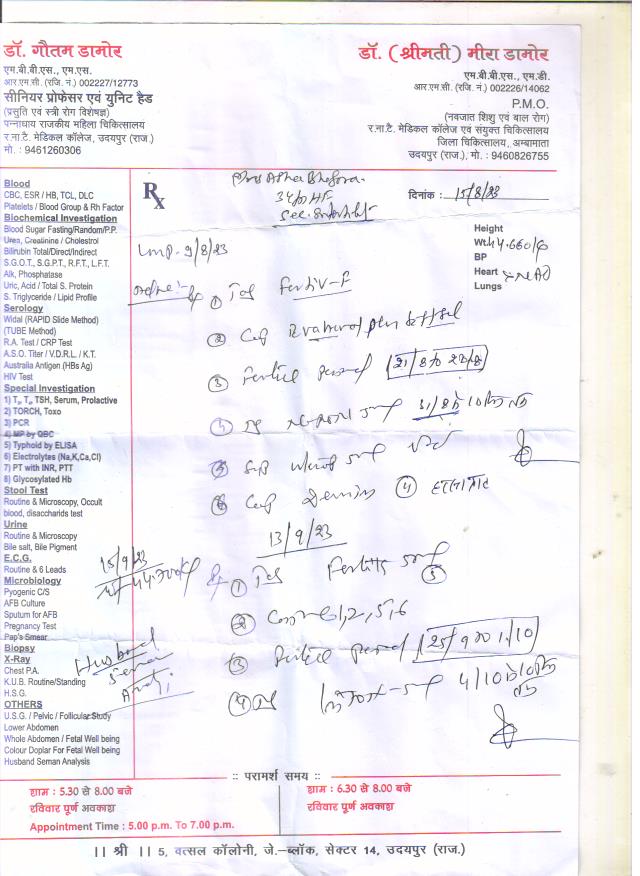 डॉ. गौतम डामोर
एम.बी.बी.एस., एम.एस.
आर.एम.सी. (रजि. नं.) 002227/12773
सीनियर प्रोफेसर एवं युनिट हैड
(प्रसुति एवं स्त्री रोग विशेषज्ञ)
पन्नाधाय राजकीय महिला चिकित्सालय
र.ना.टै. मेडिकल कॉलेज, उदयपुर (राज.)
मो. : 9461260306
डॉ. (श्रीमती) मीरा डामोर
एम.बी.बी.एस., एम.डी.
आर.एम.सी. (रजि. नं.) 002226/14062
P.M.O.
(नवजात शिशु एवं बाल रोग)
र.ना.टै. मेडिकल कॉलेज एवं संयुक्त चिकित्सालय
जिला चिकित्सालय, अम्बामाता
उदयपुर (राज.), मो. : 9460826755
Blood
CBC, ESR / HB, TCL, DLC
Platelets / Blood Group & Rh Factor
Biochemical Investigation
Blood Sugar Fasting/Random/P.P.
Urea, Creatinine / Cholestrol
Bilirubin Total/Direct/Indirect
S.G.O.T., S.G.P.T., R.F.T., L.F.T.
Alk, Phosphatase
Uric, Acid / Total S. Protein
S. Triglyceride / Lipid Profile
Serology
Widal (RAPID Slide Method)
(TUBE Method)
R.A. Test / CRP Test
A.S.O. Titer / V.D.R.L. / K.T.
Australia Antigen (HBs Ag)
HIV Test
Special Investigation
1) T₃, T₄, TSH, Serum, Prolactive
2) TORCH, Toxo
3) PCR
4) MP by QBC
5) Typhoid by ELISA
6) Electrolytes (Na,K,Ca,Cl)
7) PT with INR, PTT
8) Glycosylated Hb
Stool Test
Routine & Microscopy, Occult
blood, disaccharids test
Urine
Routine & Microscopy
Bile salt, Bile Pigment
E.C.G.
Routine & 6 Leads
Microbiology
Pyogenic C/S
AFB Culture
Sputum for AFB
Pregnancy Test
Pap's Smear
Biopsy
X-Ray
Chest P.A.
K.U.B. Routine/Standing
H.S.G.
OTHERS
U.S.G. / Pelvic / Follicular Study
Lower Abdomen
Whole Abdomen / Fetal Well being
Colour Doplar For Fetal Well being
Husband Seman Analysis
Rx
दिनांक : 15/8/23
Height
Wt.
BP
Heart
Lungs
LMP - 9/8/23
① Tab Fertiv-F
② Cap
③ Fertile Period (21/8 to
31/8
④
13/9/23
15/9/23
① Tab
② Cont 1, 2, 5, 6
③ Fertile Period (25/9 to 1/10)
④ 4/10
Husband
Semen
:: परामर्श समय ::
शाम : 5.30 से 8.00 बजे
रविवार पूर्ण अवकाश
Appointment Time : 5.00 p.m. To 7.00 p.m.
शाम : 6.30 से 8.00 बजे
रविवार पूर्ण अवकाश
|| श्री || 5, वत्सल कॉलोनी, जे.–ब्लॉक, सेक्टर 14, उदयपुर (राज.)